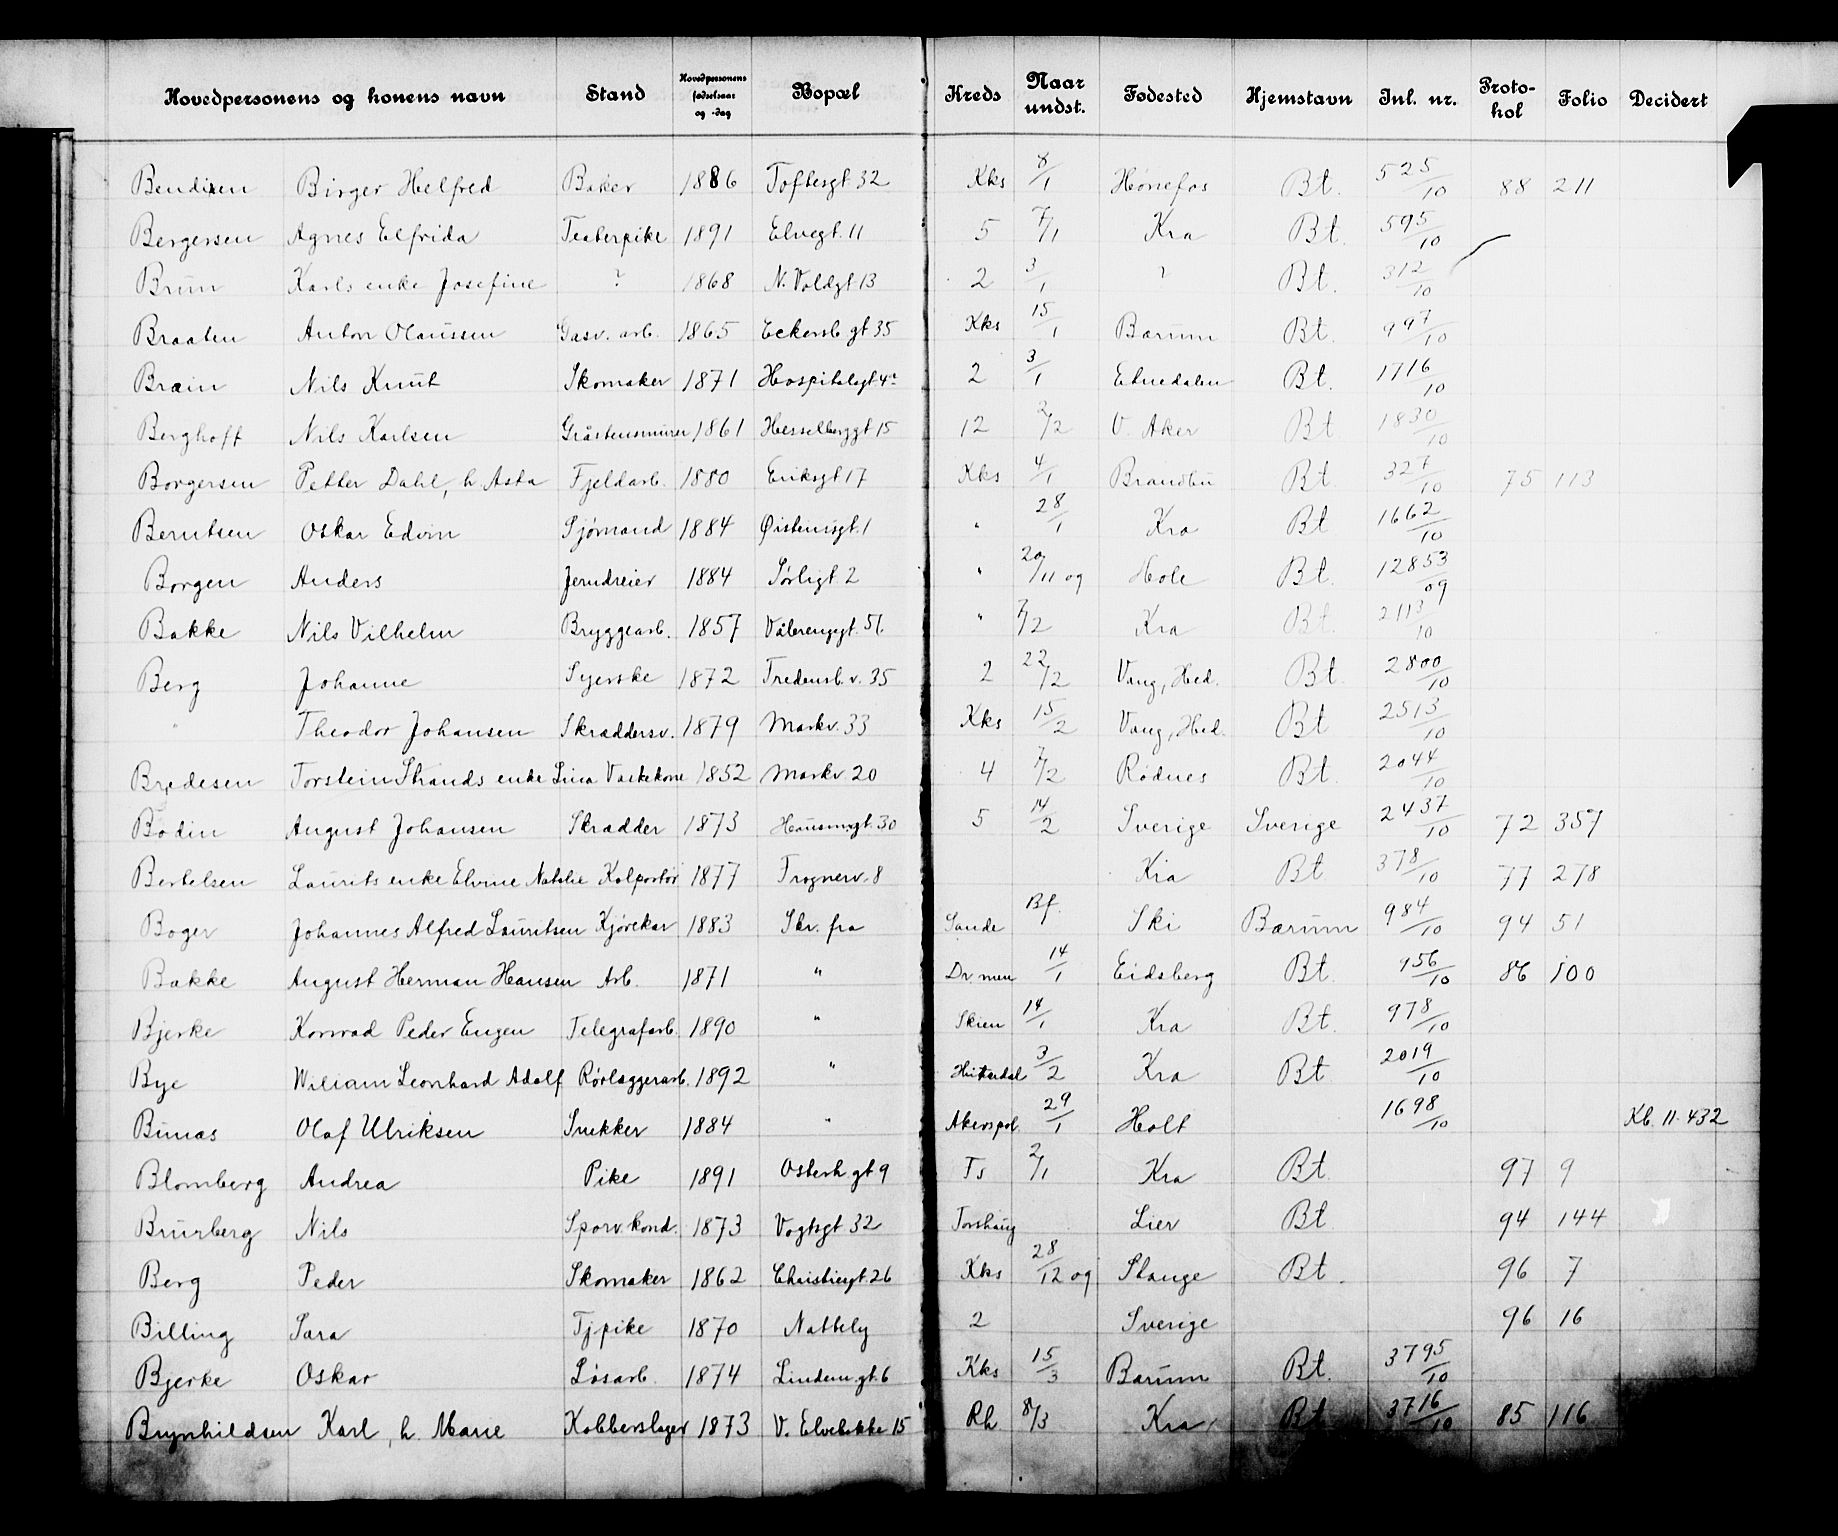 Hovedpersonens og konens navn Stand Hovedpersonens fødselsaar og -dag Bopæl Kreds Naar undst. Fødested Hjemstavn Inl. nr. Protokol Folio Decidert
Bendixen Birger Helfred Baker 1886 Toftesgt. 32 Kks 8/1 Hønefos Bt. 525/10 88 211
Bergersen Agnes Elfrida Teaterpike 1891 Elvegt. 11 5 7/1 Kra Bt. 595/10
Brun Karls enke Josefine ? 1868 N. Voldgt 13 2 3/1 ? Bt. 312/10
Braaten Anton Olaussen Gasv. arb. 1865 Eckersb. gt 35 Kks 15/1 Bærum Bt. 997/10
Bræin Nils Knut Skomaker 1871 Hospitalsgt 4a 2 3/1 Etnedalen Bt. 1716/10
Berghoff Nils Karlsen Gråstensmurer 1861 Hesselberggt 15 12 2/2 V. Aker Bt 1830/10
Borgersen Petter Dahl, h. Asta Fjeldarb. 1880 Eriksgt 17 Kks 4/1 Brandbu Bt 327/10 75 113
Berntsen Oskar Edvin Sjømand 1884 Øistensgt. 1 " 28/1 Kra Bt 1662/10
Borgen Anders Jerndreier 1884 Sørligt 2 " 20/11 09 Hole Bt. 12853/09
Bakke Nils Vilhelm Bryggearb. 1857 Vålerenggt. 51 " 7/2 Kra Bt. 2113/10
Berg Johanne Syerske 1872 Fredensb. v. 35 2 22/2 Vang, Hed. Bt. 2800/10
" Theodor Johansen Skræddersv. 1879 Markv. 33 Kks 15/2 Vang, Hed. Bt 2513/10
Bredesen Torstein Strands enke Lina Vaskekone 1852 Markv. 20 4 7/2 Rødnes Bt. 2044/10
Bodin August Johansen Skrædder 1873 Hausmgt. 30 5 14/2 Sverige Sverige 2437/10 72 357
Bertelsen Laurits enke Elvine Natalie Kolportør 1877 Frognerv. 8 Kra Bt 378/10 77 278
Boger Johannes Alfred Lauritsen Kjørekar 1883 Skr. fra Sande Bf. Ski Bærum 984/10 94 51
Bakke August Herman Hansen Arb. 1871 " Dr.men 14/1 Eidsberg Bt. 956/10 86 100
Bjerke Konrad Peder Eugen Telegrafarb. 1890 " Skien 14/1 Kra Bt. 978/10
Bye Wiliam Leonhard Adolf Rørlæggerarb. 1892 " Hitterdal 3/2 Kra Bt 2019/10
Bunæs Olaf Ulriksen Snekker 1884 " Akerspol. 29/1 Holt 1698/10 Kb. 11. 432
Blomberg Andrea Pike 1891 Osterh. gt 9 Ts 2/1 Kra Bt. 97 9
Brurberg Nils Sporv. kond. 1873 Vogtsgt 32 Torshaug Lier Bt. 94 144
Berg Peder Skomaker 1862 Christiesgt. 26 Kks 28/12 09 Stange Bt. 96 7
Billing Sara Tj.pike 1870 Nattely 2 Sverige 96 16
Bjerke Oskar Løsarb. 1874 Lindem. gt. 6 Kks 15/3 Bærum Bt. 3795/10
Brynhildsen Karl, h. Marie Kobberslager 1873 V. Elvebakke 15 Rh. 8/3 Kra Bt 3716/10 85 116